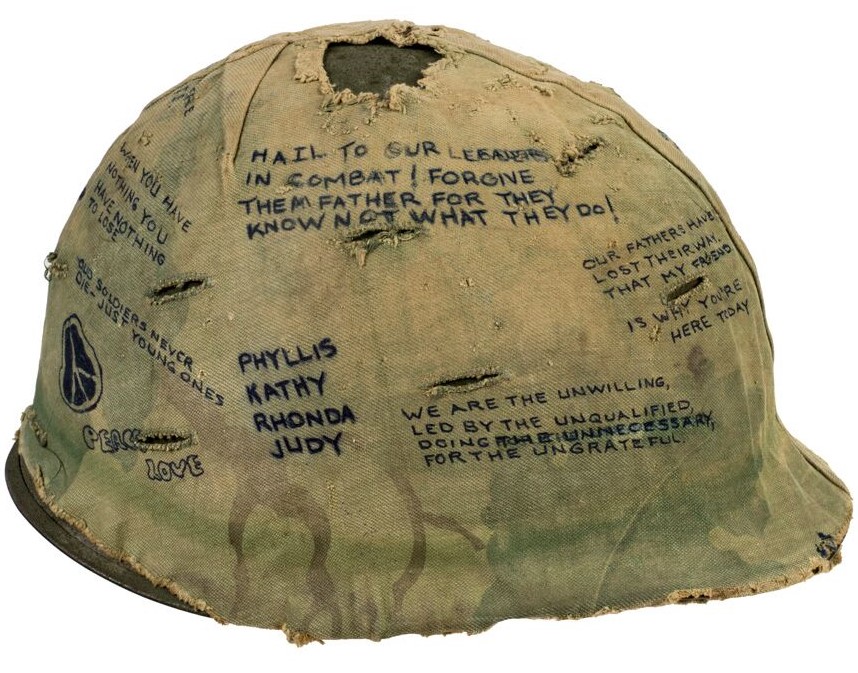 WHEN YOU HAVE
NOTHING YOU
HAVE NOTHING
TO LOSE
HAIL TO OUR LEADERS
IN COMBAT! FORGIVE
THEM FATHER FOR THEY
KNOW NOT WHAT THEY DO!
OUR FATHERS HAVE
LOST THEIR WAY.
THAT MY FRIEND
IS WHY YOU'RE
HERE TODAY
OLD SOLDIERS NEVER
DIE - JUST YOUNG ONES
PEACE
LOVE
PHYLLIS
KATHY
RHONDA
JUDY
WE ARE THE UNWILLING,
LED BY THE UNQUALIFIED,
DOING THE UNNECESSARY,
FOR THE UNGRATEFUL.